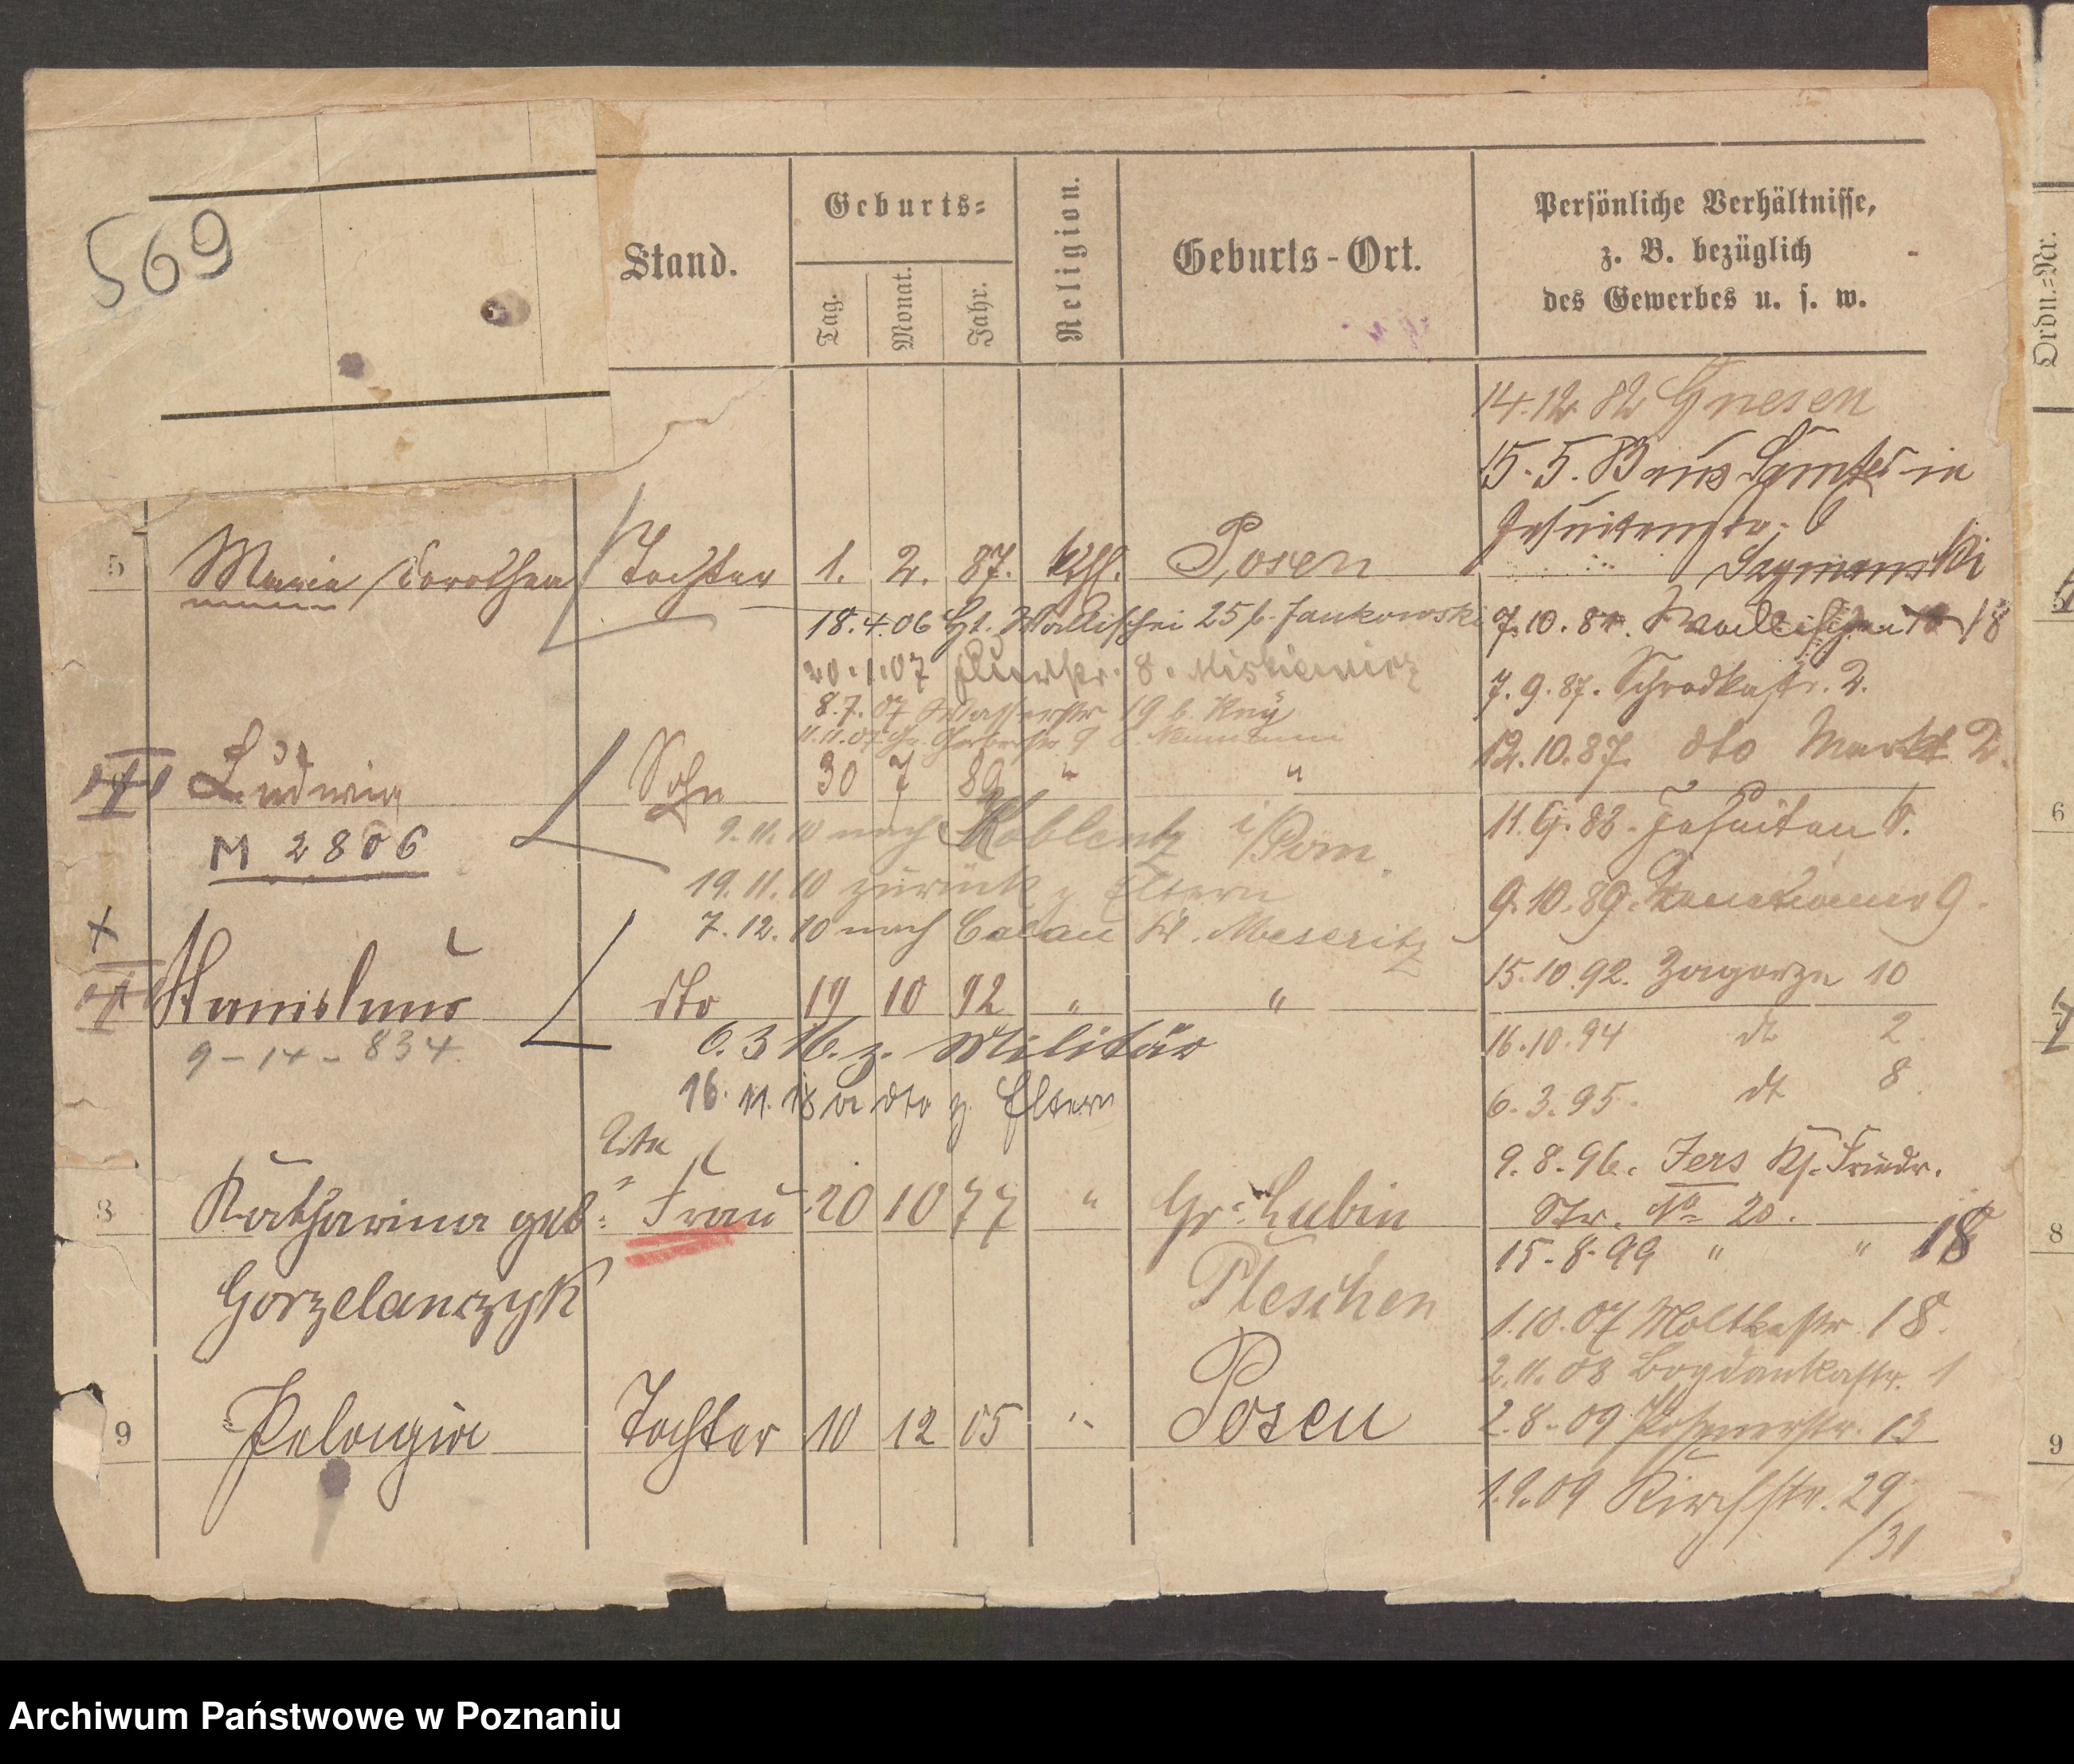 569
Stand.
Geburts=
Tag.
Monat.
Jahr.
Religion.
Geburts-Ort.
Persönliche Verhältnisse,
z. B. bezüglich
des Gewerbes u. s. w.
Ordn.=Nr.
14.12 82 Gnesen
15.5.83 aus Samter in
Jesuitenstr. 6
5 Maria Dorothea Tochter 1. 2. 87. kth. Posen
18.4.06 Wallischei 25 b. Jankowski
7.10.8 Wallischei 18
20.1.07 8.
7.9.87. Schrodkastr. 2.
8.7.07 Wasserstr 19 b.
11.11.07 Gr. Gerberstr 9 b. Neumann
12.10.87. dto Markt 2.
Ludwig Sohn 30 7 89 " "
9.11.10 nach Koblentz i/Pom.
11.9.88. Jesuiten 6.
M 2806
19.11.10 zurück z Eltern
7.12.10 nach Calau Kr. Meseritz
9.10.89. 9.
15.10.92. Zagorze 10
Stanislaus dto 19 10 92 " "
9-14-834.
6.3 16. z. Militär
16.10.94 dt 2
16.11.18 v dto z. Eltern
6.3.95. dt 8
9.8.96. Jers Kj. Friedr.
Str. No 20.
8 Katharina geb: Frau 20 10 77 " Gr. Lubin
15.8.99 " " 18
Gorzelanczyk
Pleschen
1.10.07 Moltkestr. 18.
2.11.08 Bogdankastr. 1
9 Pelagia Tochter 10 12 05 " Posen
2.8.09 Posenerstr. 13
1.9.09 Kirchstr. 29
/31
6
8
9
Archiwum Państwowe w Poznaniu